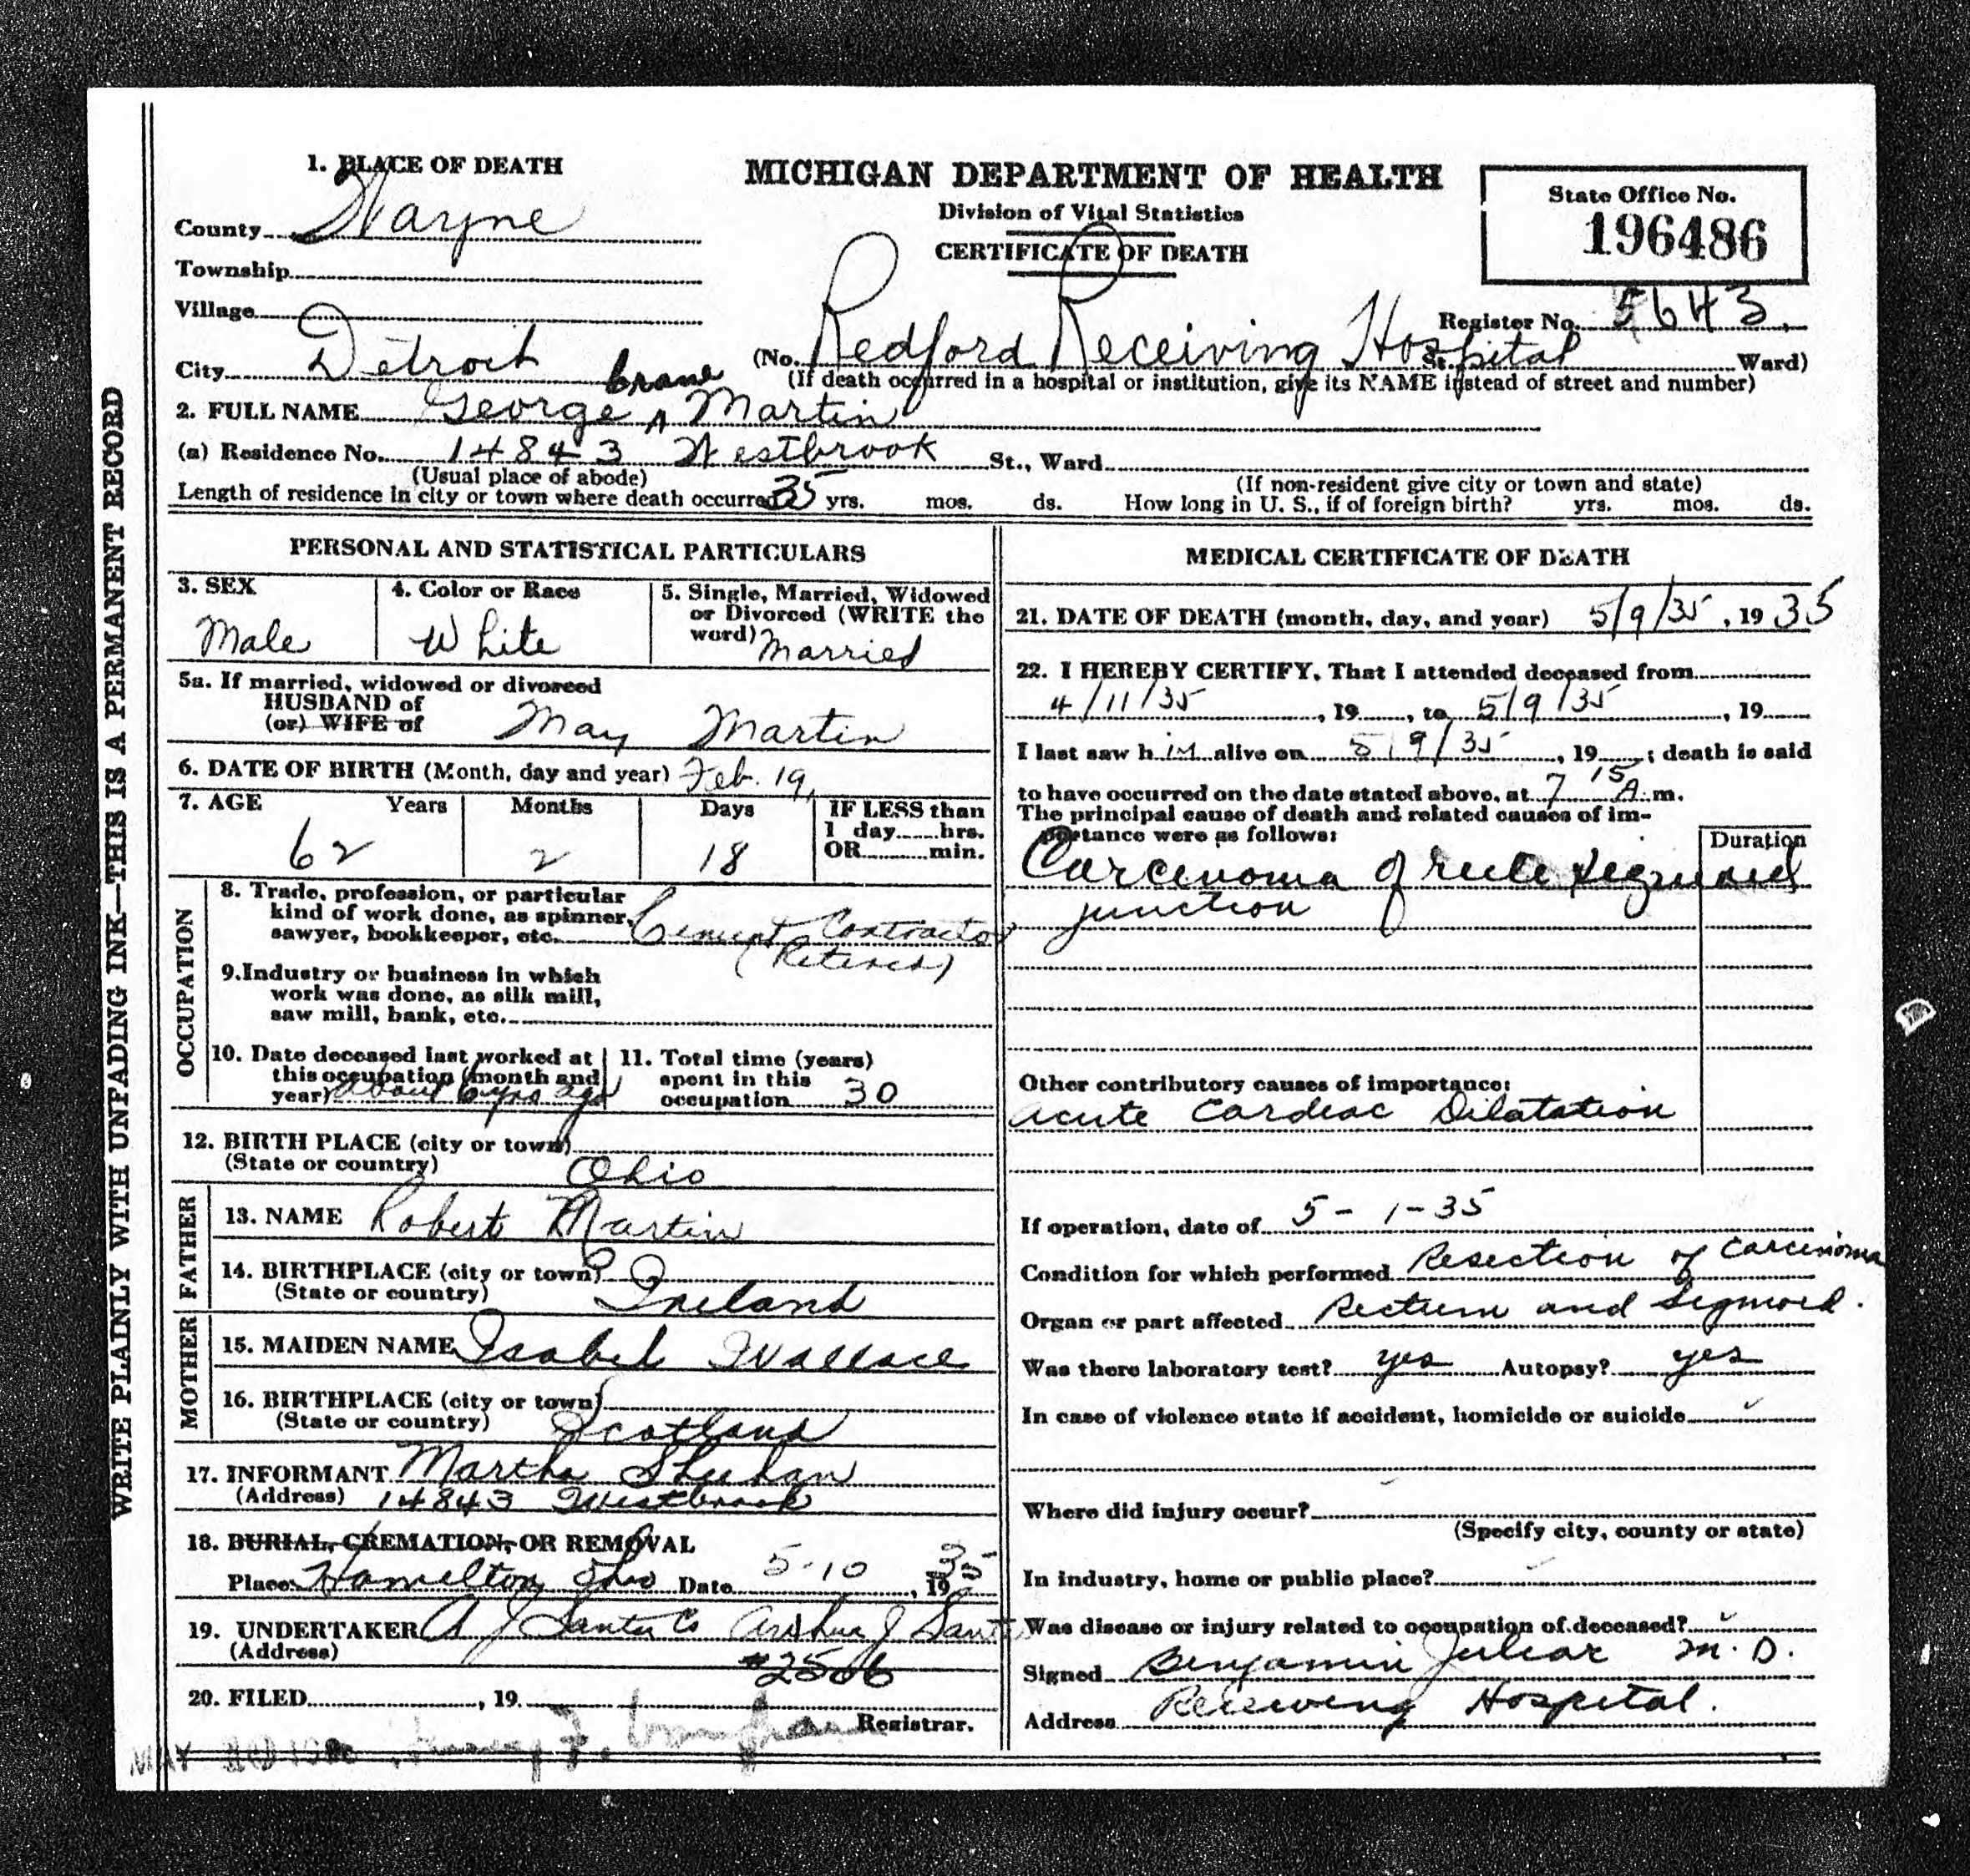 WRITE PLAINLY WITH UNFADING INK—THIS IS A PERMANENT RECORD
MICHIGAN DEPARTMENT OF HEALTH
Division of Vital Statistics
CERTIFICATE OF DEATH
State Office No.
196486
Register No. 5643
1. PLACE OF DEATH
County Wayne
Township
Village
City Detroit (No. Redford Receiving Hospital St., Ward)
(If death occurred in a hospital or institution, give its NAME instead of street and number)
Crane
2. FULL NAME George ^ Martin
(a) Residence No. 14843 Westbrook St., Ward
(Usual place of abode) (If non-resident give city or town and state)
Length of residence in city or town where death occurred 35 yrs. mos. ds. How long in U. S., if of foreign birth? yrs. mos. ds.
PERSONAL AND STATISTICAL PARTICULARS
3. SEX
Male
4. Color or Race
White
5. Single, Married, Widowed
or Divorced (WRITE the
word) Married
5a. If married, widowed or divorced
HUSBAND of
(or) WIFE of May Martin
6. DATE OF BIRTH (Month, day and year) Feb. 19,
7. AGE Years Months Days
62 2 18
IF LESS than
1 day hrs.
OR min.
OCCUPATION
8. Trade, profession, or particular
kind of work done, as spinner,
sawyer, bookkeeper, etc. Cement Contractor
(Retired)
9. Industry or business in which
work was done, as silk mill,
saw mill, bank, etc.
10. Date deceased last worked at
this occupation (month and
year) about 6 yrs ago
11. Total time (years)
spent in this
occupation 30
12. BIRTH PLACE (city or town)
(State or country) Ohio
FATHER
13. NAME Robert Martin
14. BIRTHPLACE (city or town)
(State or country) Ireland
MOTHER
15. MAIDEN NAME Isabel Wallace
16. BIRTHPLACE (city or town)
(State or country) Scotland
17. INFORMANT Martha Sheehan
(Address) 14843 Westbrook
18. BURIAL, CREMATION, OR REMOVAL
Place Hamilton Ohio Date 5-10, 1935
19. UNDERTAKER A J Santu Co Arthur J Sant
(Address) #2506
20. FILED , 19
Registrar.
MEDICAL CERTIFICATE OF DEATH
21. DATE OF DEATH (month, day, and year) 5/9/35, 1935
22. I HEREBY CERTIFY, That I attended deceased from
4/11/35, 19, to 5/9/35, 19
I last saw him alive on 5/9/35, 19; death is said
to have occurred on the date stated above, at 7 15 A.m.
The principal cause of death and related causes of im-
portance were as follows:
Duration
Carcinoma of recto sigmoid
junction
Other contributory causes of importance:
Acute Cardiac Dilatation
If operation, date of 5-1-35
Condition for which performed Resection of Carcinoma
Organ or part affected Rectum and Sigmoid.
Was there laboratory test? yes Autopsy? yes
In case of violence state if accident, homicide or suicide
Where did injury occur?
(Specify city, county or state)
In industry, home or public place?
Was disease or injury related to occupation of deceased?
Signed Benjamin Juliar M.D.
Address Receiving Hospital.